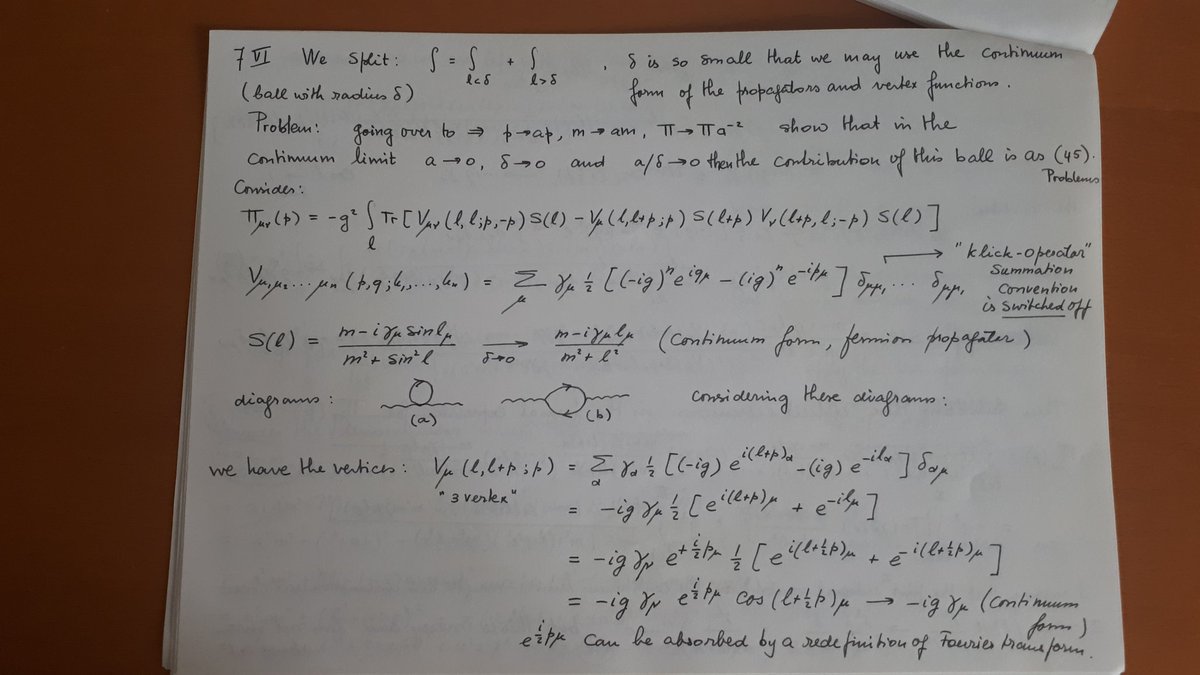 7 VI We split: ∫ = ∫_{l<δ} + ∫_{l>δ} , δ is so small that we may use the continuum
(ball with radius δ) form of the propagators and vertex functions.
Problem: going over to ⇒ p→ap, m→am, Π→Πa⁻² show that in the
continuum limit a→0, δ→0 and a/δ→0 then the contribution of this ball is as (45).
Problems
Consider:
Π_{μν}(p) = -g² ∫_l Tr[V_{μν}(l,l;p,-p) S(l) - V_μ(l,l+p;p) S(l+p) V_ν(l+p,l;-p) S(l)]
"klick-operator"
V_{μ₁μ₂...μₙ}(p,q;k₁,...,kₙ) = Σ_μ γ_μ ½ [(-ig)ⁿ e^{iq_μ} - (ig)ⁿ e^{-ip_μ}] δ_{μμ₁} ... δ_{μμ₁} Summation
Convention
is switched off
S(l) = (m-iγ_μ sin l_μ)/(m²+sin²l) →_{δ→0} (m-iγ_μ l_μ)/(m²+l²) (Continuum form, fermion propagator)
diagrams: (a) (b) considering these diagrams:
we have the vertices: V_μ(l,l+p;p) = Σ_α γ_α ½ [(-ig) e^{i(l+p)_α} - (ig) e^{-il_α}] δ_{αμ}
"3 vertex"
= -ig γ_μ ½ [e^{i(l+p)_μ} + e^{-il_μ}]
= -ig γ_μ e^{+\frac{i}{2}p_μ} ½ [e^{i(l+½p)_μ} + e^{-i(l+½p)_μ}]
= -ig γ_μ e^{\frac{i}{2}p_μ} cos(l+½p)_μ → -ig γ_μ (continuum
form)
e^{\frac{i}{2}p_μ} can be absorbed by a redefinition of Fourier transform.